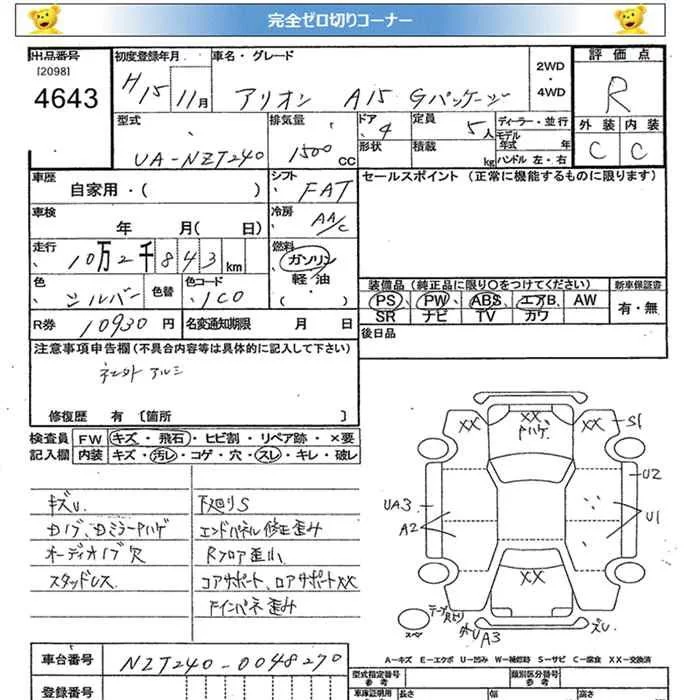 完全ゼロ切りコーナー
出品番号 初度登録年月 車名・グレード 2WD・4WD 評価点
[2098]
4643 H15 11月 アリオン A15 Gパッケージ R
型式 排気量 ドア 4 定員 5人 ディーラー・並行 外装 内装
UA-NZT240 1500 CC 形状 積載 kg モデル年式 年 C C
ハンドル 左・右
車歴 シフト FAT セールスポイント (正常に機能するものに限ります)
自家用・( )
車検 年 月( 日) 冷房 AA/C
走行 10万2千843km 燃料 ガソリン・軽油・( )
色 シルバー 色替 色コード 1C0 装備品(純正品に限り○をつけてください) 新車保証書
PS、PW、ABS、エアB、AW 有・無
SR ナビ TV カワ
R券 10930円 名変通知期限 月 日 後日品
注意事項申告欄(不具合内容等は具体的に記入して下さい)
社外アルミ
修復歴 有〔箇所 〕
検査員 FW キズ・飛石・ヒビ割・リペア跡・×要
記入欄 内装 キズ・汚レ・コゲ・穴・スレ・キレ・破レ
XX XX XX S1
ハゲ
U2
UA3 U1
A2
XX
キズU 下廻りS
エンドパネル修正歪み
オーディオノブ穴 Rフロア歪み
スタッドレス コアサポート、ロアサポートXX
スペ UA3 ズレ
A-キズ E-エクボ U-凹み W-補修跡 S-サビ C-腐食 XX-交換済
車台番号 NZT240-0048270
型式指定番号 参考 類別区分番号 参考
登録番号 車庫証明用 参考 長さ 幅 高さ